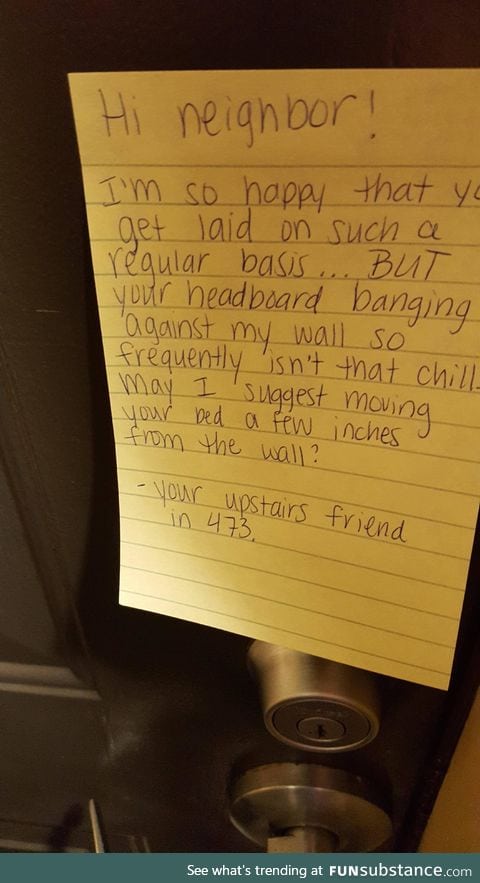 Hi neighbor!
I'm so happy that yo
get laid on such a
regular basis... BUT
your headboard banging
against my wall so
frequently isn't that chill.
May I suggest moving
your bed a few inches
from the wall?
- your upstairs friend
in 473.
See what's trending at FUNsubstance.com